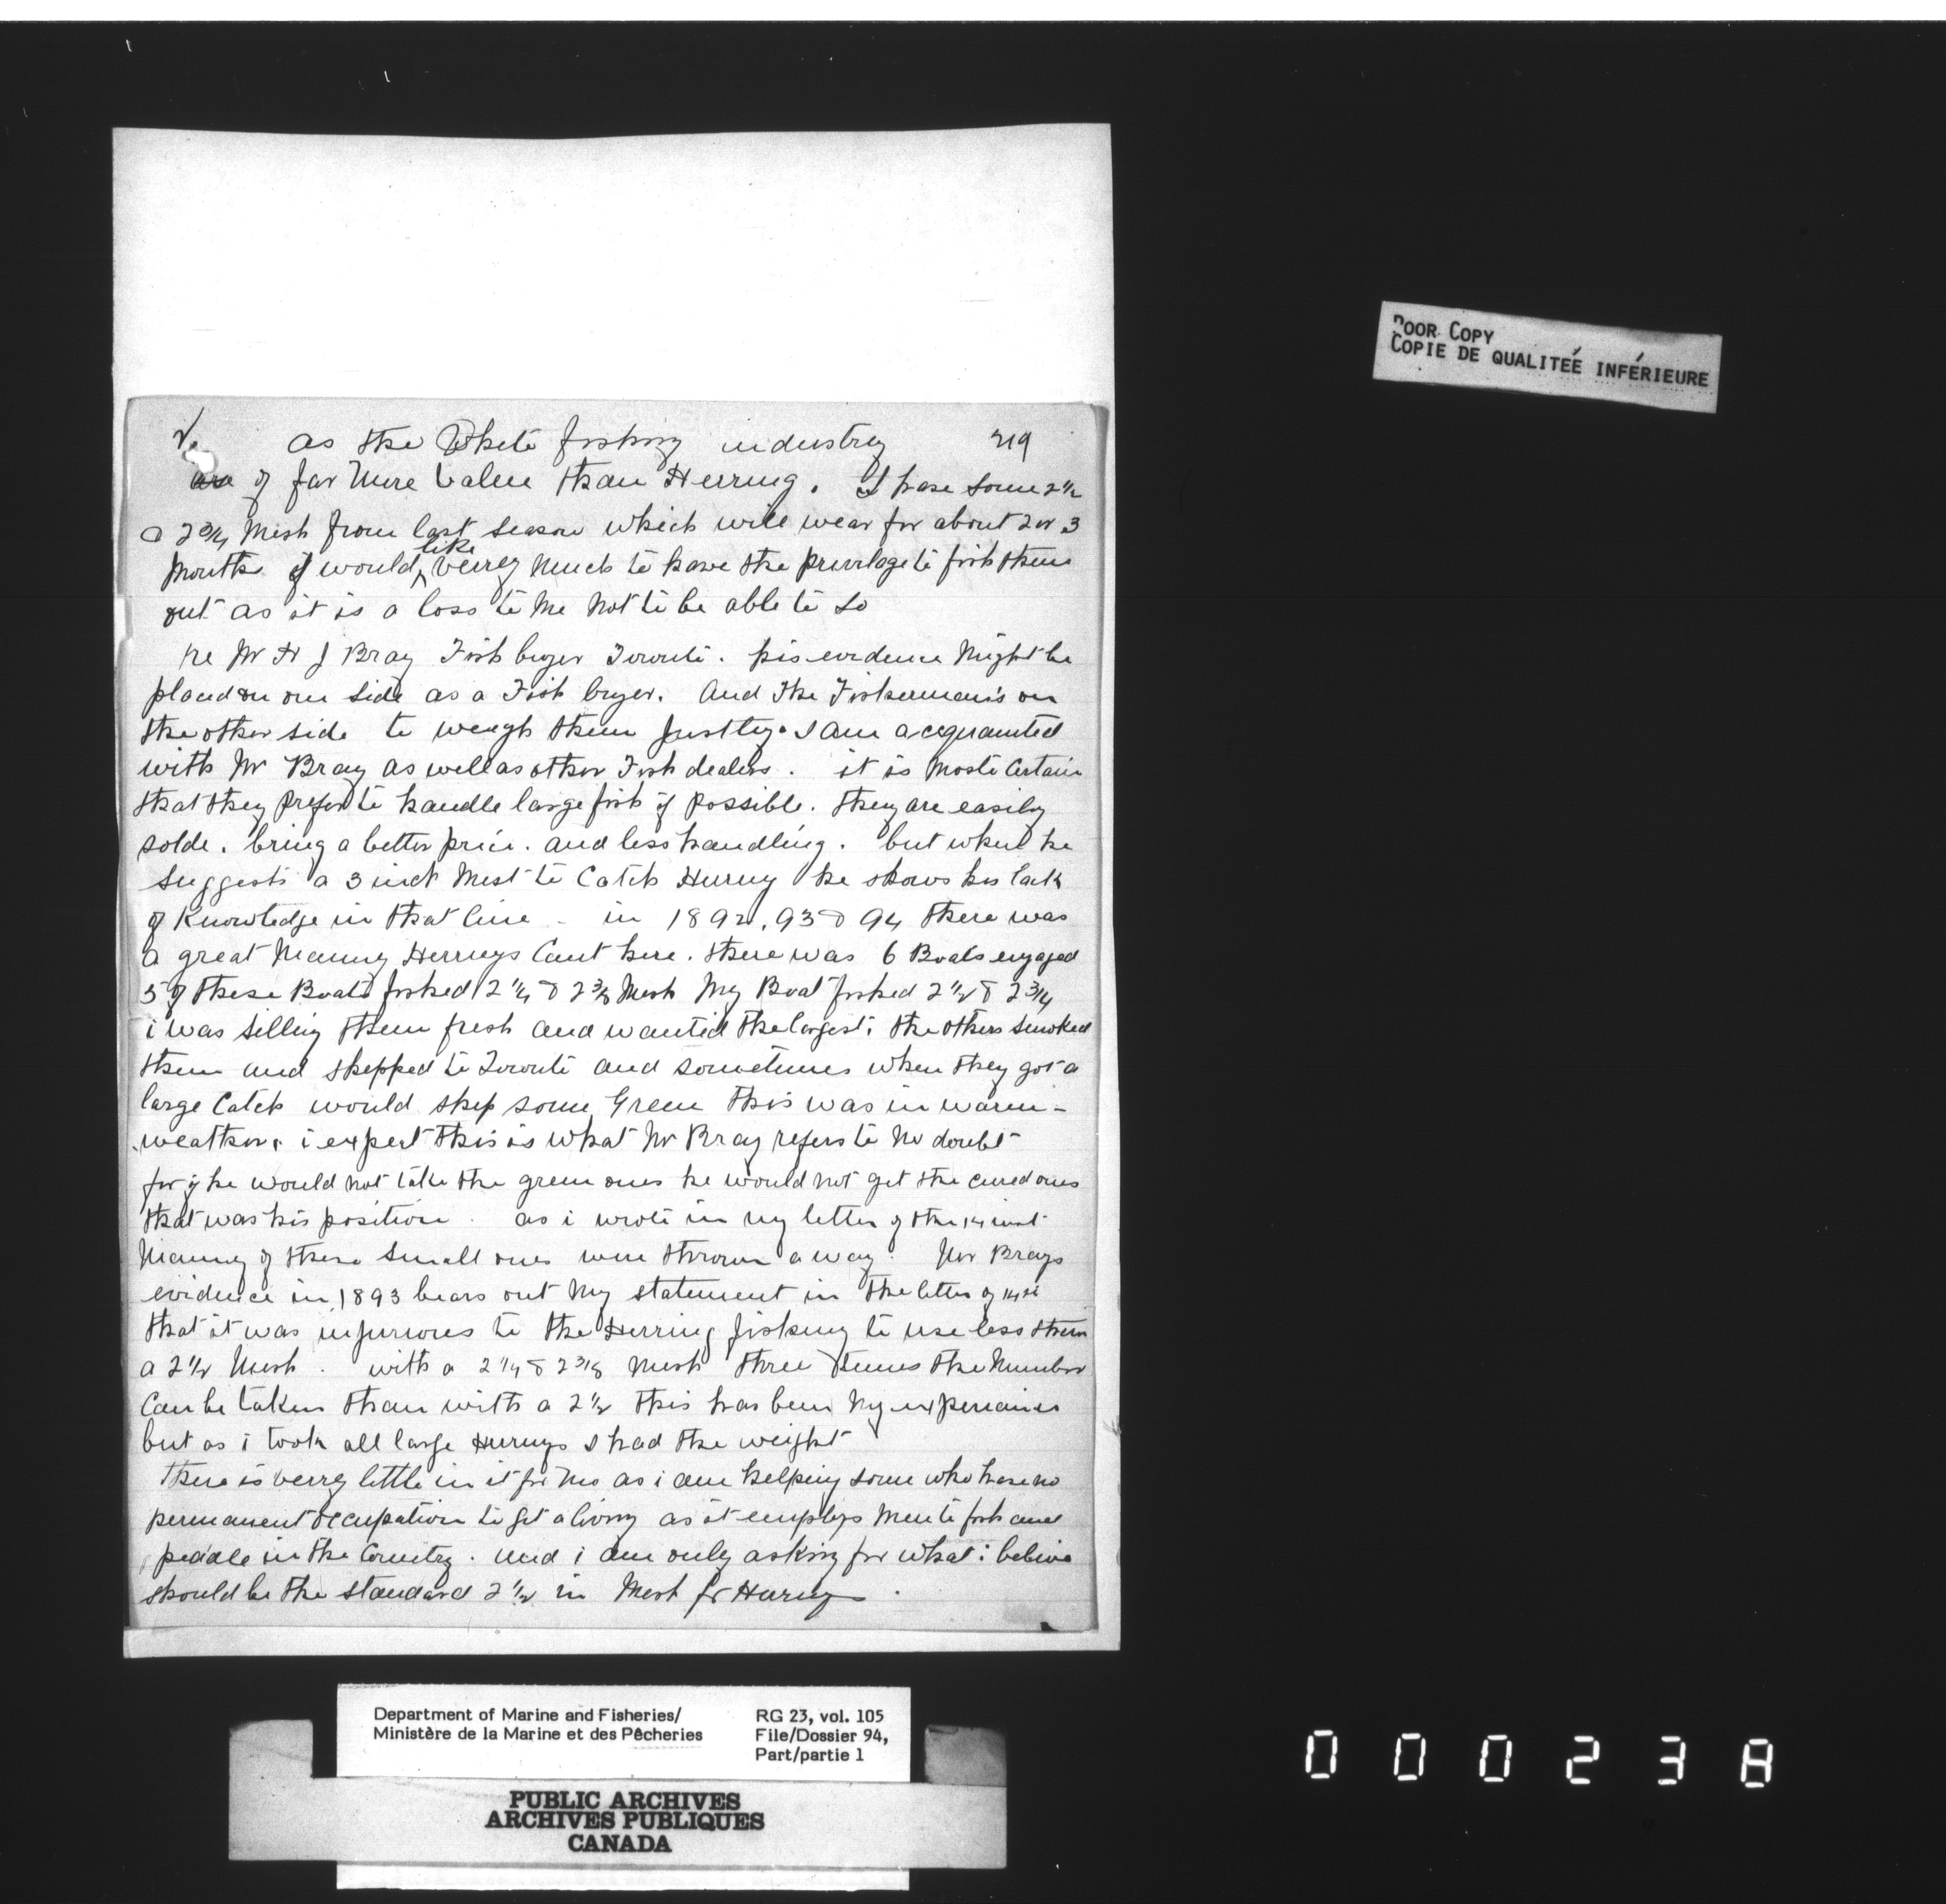 2. as the White fishing industry 219
are of far More Value than Herring. I have some 2 1/2
& 2 3/4 Mesh from last season which will wear for about 2 or 3
Months if would like verry Much to have the privilage to fish them
out as it is a loss to Me Not to be able to so
re Mr H J Bray Fish buyer Toronto. his evidence Might be
placed on one side as a Fish buyer. And The Fisherman's on
the other side to weigh them Justly. I am acquainted
with Mr Bray as well as other Fish dealers. it is Moste Certain
that they prefer to handle large fish if possible. they are easily
solde. bring a better price. and less handling. but when he
suggests a 3 inch Mesh to Catch Herring he shows his lack
of Knowledge in that line - in 1892, 93 & 94 there was
a great Manny Herrings Caut here. there was 6 Boats engaged
5 of these Boats fished 2 1/4 & 2 3/8 Mesh My Boat fished 2 1/2 & 2 3/4
i was selling them fresh and wanted the largest. the others smoked
them and shipped to Toronto and sometimes when they got a
large Catch would ship some Green this was in warm-
weather. i expect this is what Mr Bray refers to No doubt
for if he would not take the green ones he would not get the cured ones
that was his position. as i wrote in my letter of the 14 inst
Manny of these small ones were thrown away. Mr Brays
evidence in 1893 bears out My statement in the letter of 14th
that it was injurious to the Herring fishing to use less then
a 2 1/2 Mesh. with a 2 1/4 & 2 3/8 Mesh three times the Number
Can be taken than with a 2 1/2 this has been My
but as i took all large Herrings I had the weight
there is verry little in it for Me as i am helping some who have no
permanent occupation to get a living as it employs Men to fish and
peddle in the Country. and i am only asking for what i believe
should be the standard 2 1/2 in Mesh for Herrings.
POOR COPY
COPIE DE QUALITEÉ INFÉRIEURE
Department of Marine and Fisheries/
Ministère de la Marine et des Pêcheries
RG 23, vol. 105
File/Dossier 94,
Part/partie 1
PUBLIC ARCHIVES
ARCHIVES PUBLIQUES
CANADA
000238